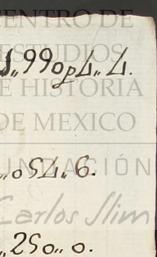 CENTRO DE
ESTUDIOS
DE HISTORIA
DE MEXICO
FUNDACIÓN
Carlos Slim
990p4,,4.
,,054,,6.
,,250,,0.